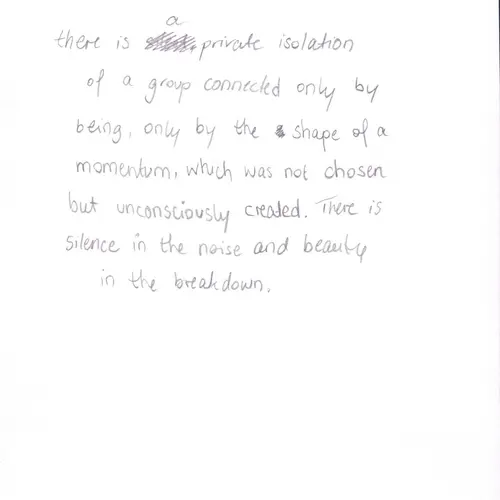 there is a private isolation
of a group connected only by
being, only by the shape of a
momentum, which was not chosen
but unconsciously created. There is
silence in the noise and beauty
in the breakdown.